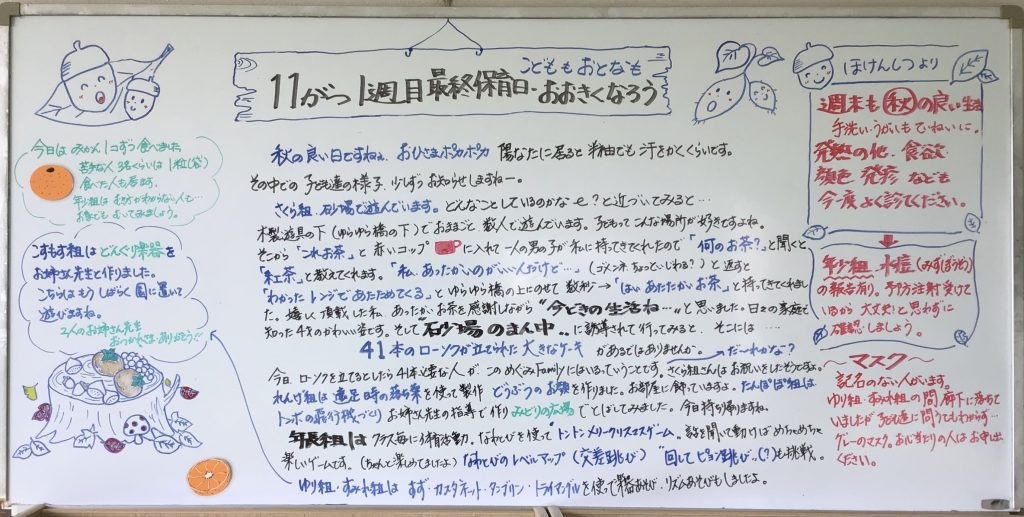 こどももおとなも
11がつ1週目最終保育日・おおきくなろう
秋の良い日ですねぇ、おひさまポカポカ 陽なたに居ると半袖でも汗をかくくらいです。
その中での子ども達の様子、少しずつお知らせしますねー。
さくら組、砂場で遊んでいます。どんなことしているのかな〜?と近づいてみると…
木製遊具の下(ゆらゆら橋の下)でおままごと 数人で遊んでいます。子どもってこんな場所が好きですよね。
そこから「これお茶」と赤いコップに入れて一人の男の子が私に持ってきてくれたので「何のお茶?」と聞くと
「紅茶」と教えてくれます。「私、あったかいのがいい人だけど…」(ゴメンネ ちょっといじわる?)と返すと
「わかった レンジであたためてくる」とゆらゆら橋の上にのせて 数秒→「はい あたたかいお茶」と持ってきてくれまし
た。嬉しく頂戴した私、あったかいお茶を感謝しながら"今どきの生活ね…"と思いました。日々の家庭を
知った4才のかわいい姿です。そして"砂場のまん中"に誘導されて行ってみると、そこには……
41本のローソクが立てられた大きなケーキ があるではありませんか。←だ〜れかな?
今日、ローソクを立てるとしたら41本必要な人が、このめぐみFamilyにはいるっていうことです。さくら組さんはお祝いをしたそうです。
れんげ組は遠足時の落ち葉を使って製作 どうぶつのお顔を作りました。お部屋に飾っていますよ。たんぽぽ組は
トンボの飛行機づくり お姉さん先生の指導で作り みどりの広場でとばしてみました。今日持ち帰りますね。
年長組はクラス毎に体育活動。なわとびを使って"トントンメリークリスマスゲーム。話を聞いて動けばめちゃめちゃ
楽しいゲームです。(ちゃんと楽しめてましたよ)なわとびのレベルマップ(交差跳び)"回してピョン跳び"(?)も挑戦。
ゆり組・すみれ組は すず・カスタネット・タンブリン・トライアングルを使って楽器あそび、リズムあそびもしましたよ。
今日はみかん1コずつ食べました
苦手な人3名くらいは1粒(袋)
食べた人も居ます。
年少組はむき方がわからない人も…
お家でもむいてみましょう。
こすもす組はどんぐり楽器を
お姉さん先生と作りました。
こちらはもうしばらく園に置いて
遊びますね。
2人のお姉さん先生
おつかれさま・ありがとう!!
ほけんしつより
週末も秋の良い生活
手洗い・うがいもていねいに。
発熱の他、食欲
顔色 発疹 なども
今一度よく診てください。
年少組 水痘(みずぼうそう)
の報告有り。予防注射受けて
いるから大丈夫!と思わずに
確認しましょう。
〜マスク〜
記名のない人がいます。
ゆり組・すみれ組の間、廊下に落ちて
いましたが 子ども達に問うてもわからず…
グレーのマスク。お心当たりの人はお申出
ください。